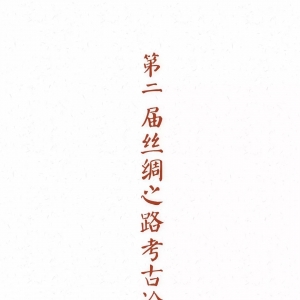 第二届丝绸之路考古论